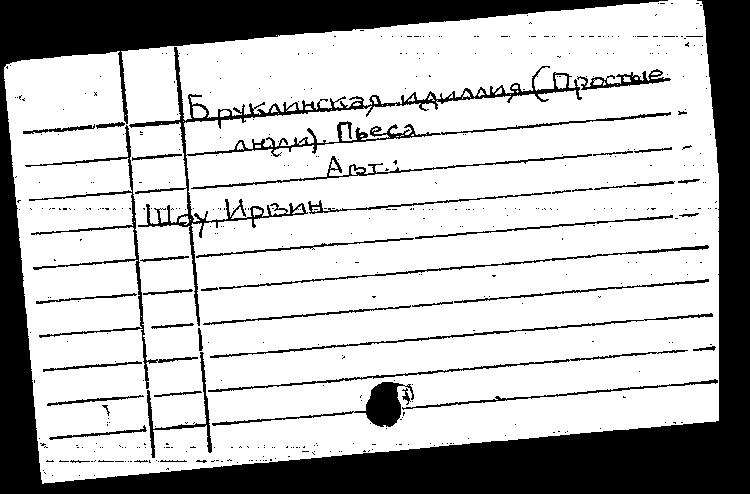 Бруклинская идиллия (Простые
люди). Пьеса
Авт.:
Шоу, Ирвин